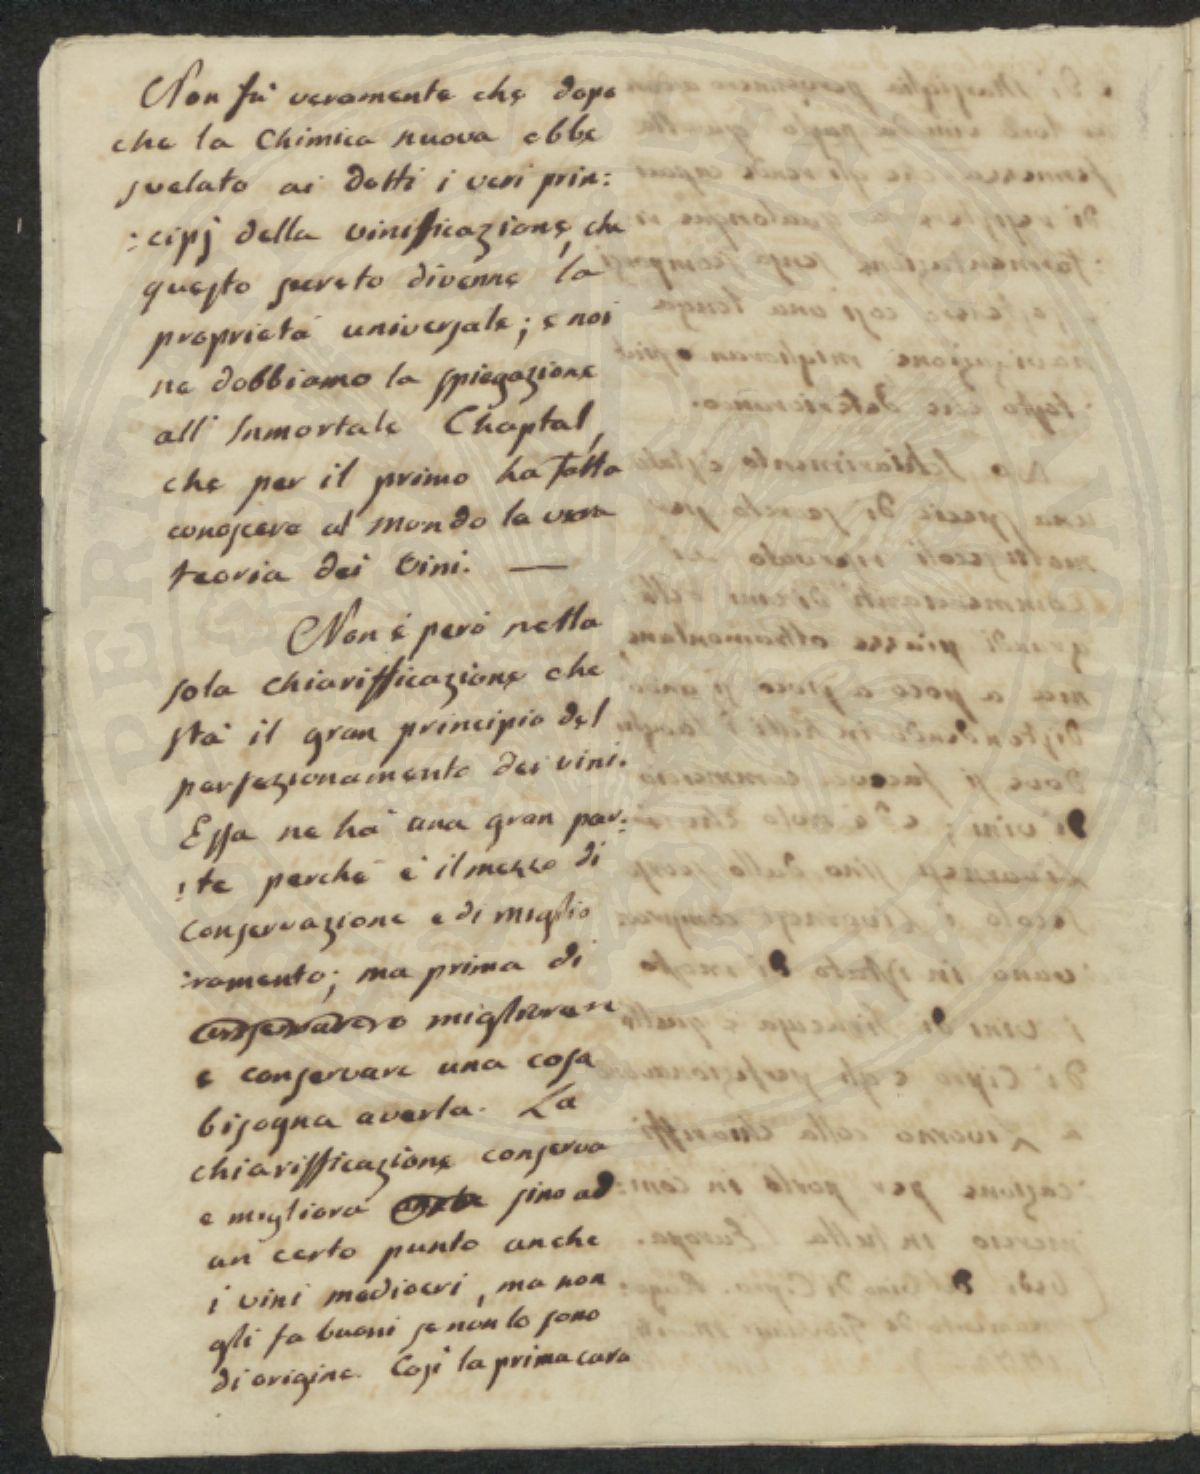 Non fù veramente che dopo
che la Chimica nuova ebbe
svelato ai dotti i veri prin:
:cipj della vinificazione, che
questo secreto divenne la
proprietà universale; e noi
ne dobbiamo la spiegazione
all' Immortale Chaptal,
che per il primo ha fatto
conoscere al mondo la vera
teoria dei vini. —
Non è però nella
sola chiarifficazione che
stà il gran principio del
perfezionamento dei vini.
Essa ne hà una gran par:
:te perchè è il mezzo di
conservazione e di miglio
:ramento; ma prima di
migliorare
e conservare una cosa
bisogna averla. La
chiarifficazione conserva
e migliora sino ad
un certo punto anche
i vini mediocri, ma non
gli fa buoni se non lo sono
di origine. Così la prima cura